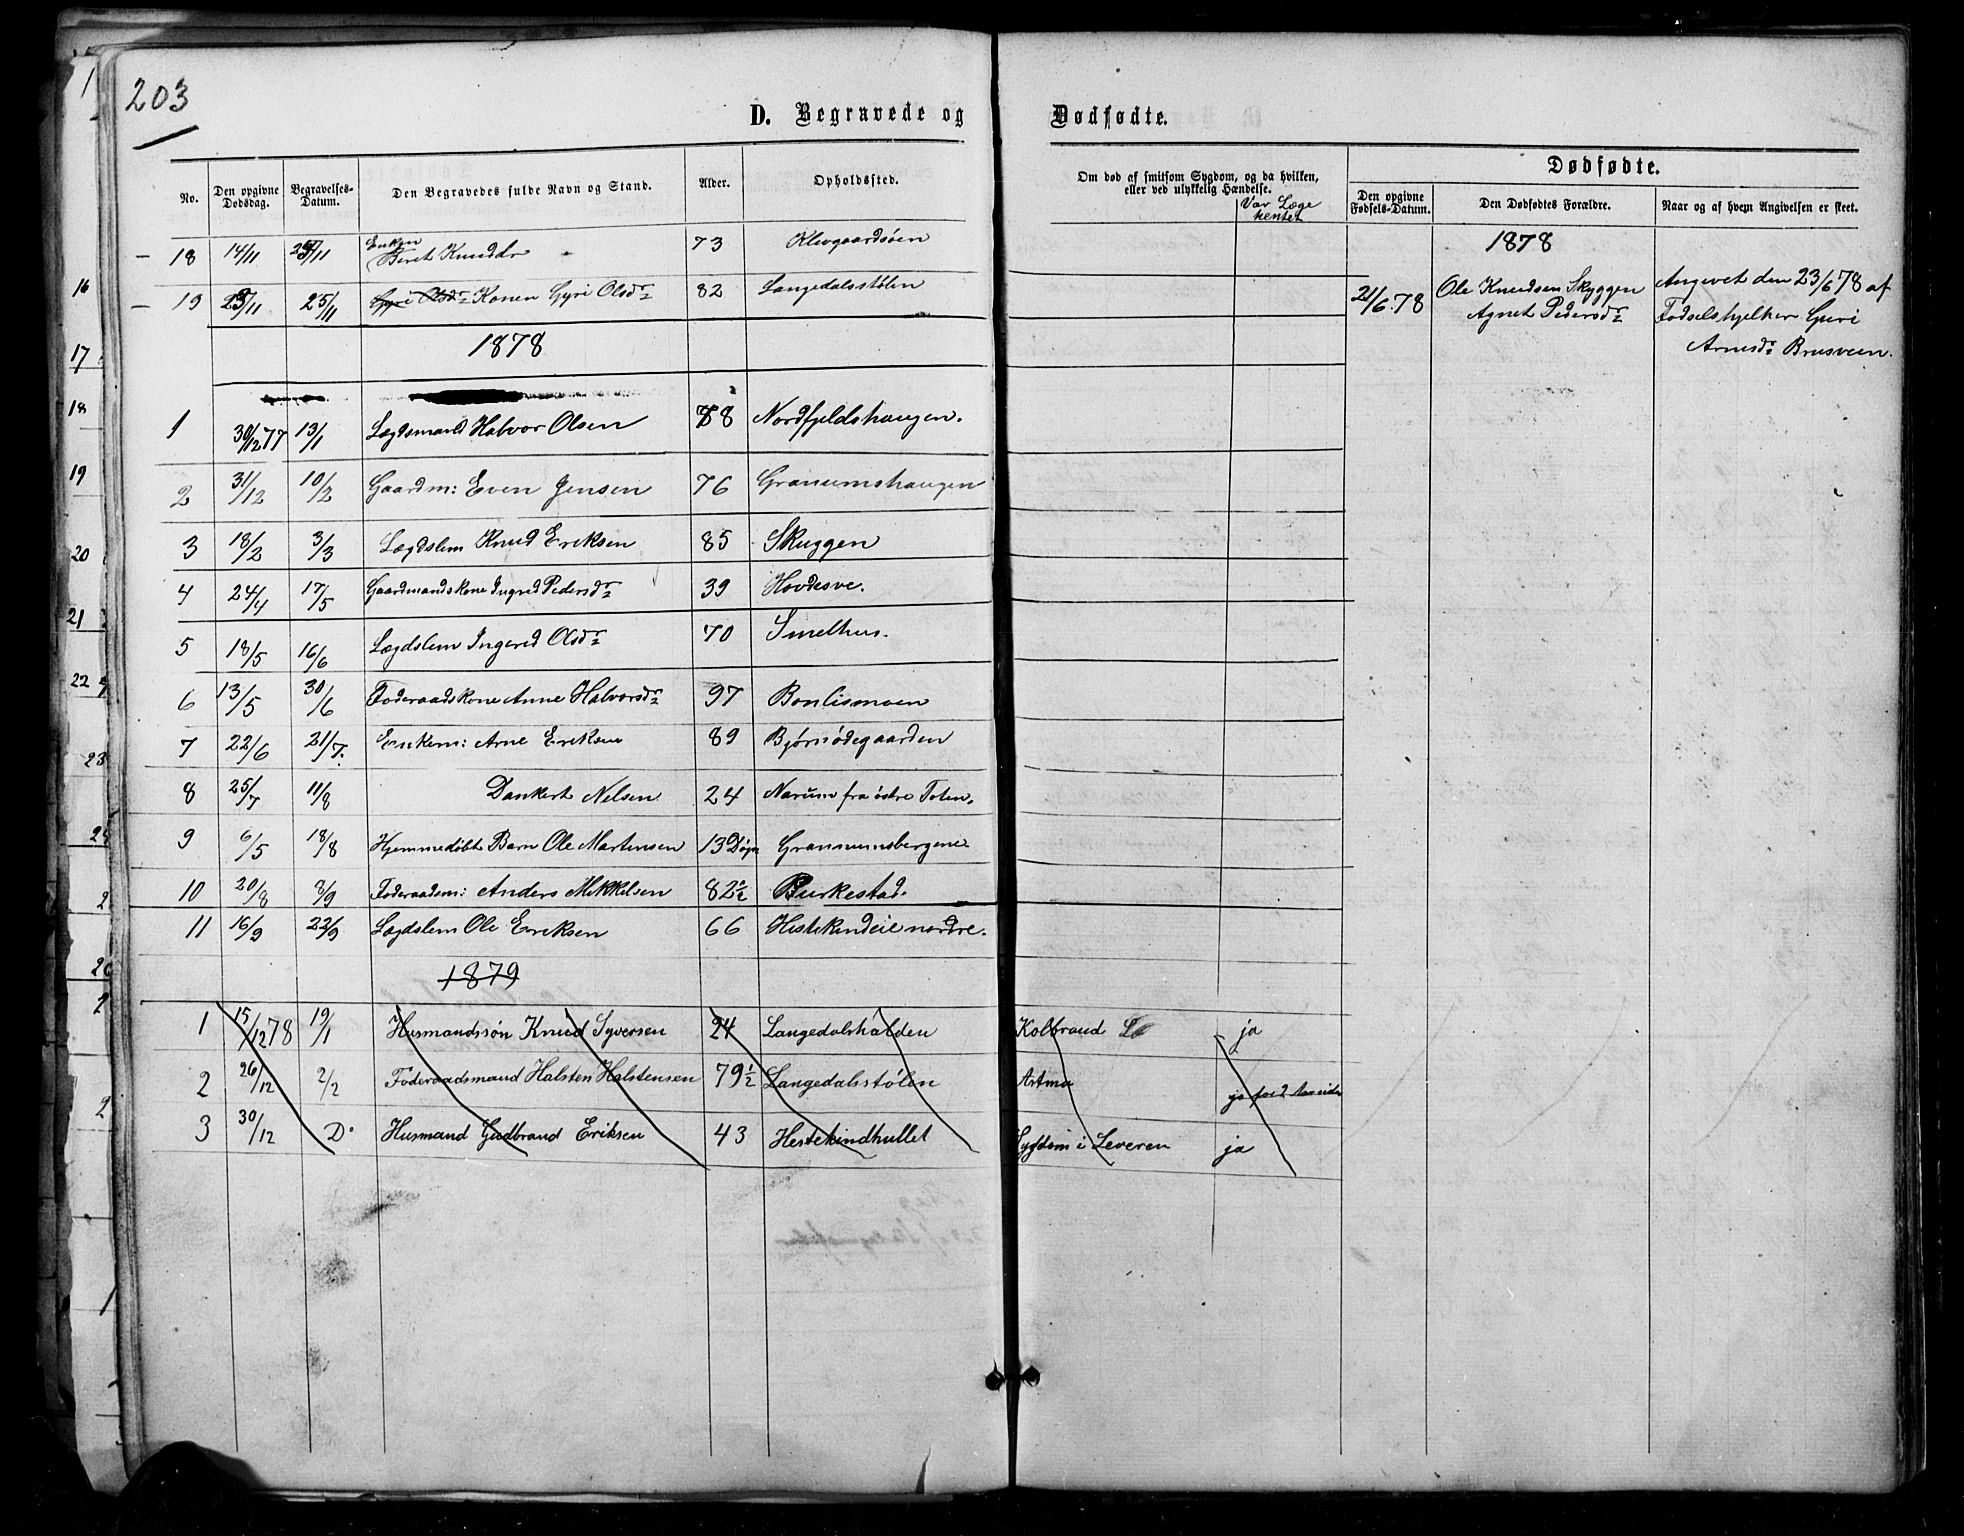 203
D. Begravede og Dødfødte.
No. Den opgivne Dødsdag. Begravelses-Datum. Den Begravedes fulde Navn og Stand. Alder. Opholdssted.
Om død af smitsom Sygdom, og da hvilken, eller ved ulykkelig Hændelse. Var Læge hentet
Dødfødte.
Den opgivne Fødsels-Datum. Den Dødfødtes Forældre. Naar og af hvem Angivelsen er skeet.
18 14/11 /11 Enken Beret Knudsdr 73 Klevgaardsøen
19 /11 25/11 Gyri Olsdr Konen Gyri Olsdr 82 Langedalsstølen
1878
1 30/12 77 13/1 Lægdsmand Halvor Olsen 88 Nordfjeldshaugen.
2 31/12 10/2 Gaardm: Even Jensen 76 Granumshaugen
3 18/2 3/3 Lægdslem Knud Eriksen 85 Skuggen
4 24/4 17/5 Gaardmandskone Ingred Pedersdr 39 Hovdesve.
5 18/5 16/6 Lægdslem Ingered Olsdr 70 Smelhus.
6 13/5 30/6 Foderaadskone Anne Halvorsdr 97 Bonlismoen
7 22/6 21/7. Enkem: Arne Eriksen 89 Bjørnødegaarden
8 25/7 11/8 Dankert Nelsen 24 Narum fra østre Toten.
9 6/5 18/8 Hjemmedøbt Barn Ole Martensen 13 Døgn Granumsbergene
10 20/8 8/9 Foderaadsm: Anders Mikkelsen 82½ Burkestad.
11 16/9 22/9 Lægdslem Ole Eriksen 66 Hestekindeie nordre.
1879
1 15/12 78 19/1 Husmandssøn Knud Syversen 24 Langedalshalden Kolbrand ja
2 26/12 2/2 Foderaadsmand Halsten Halstensen 79½ Langedalsstølen Astma ja for 2 Aar siden
3 30/12 Do Husmand Gudbrand Eriksen 43 Hestekindhullet Sygdom i Leveren ja
1878
21/6 78 Ole Knudsen Skyggen Angivet den 23/6 78 af
Agnet Pedersdr Fødselshjelper Guri
Arnesdr Brusveen.
16
17
18
19
20
21
22
23